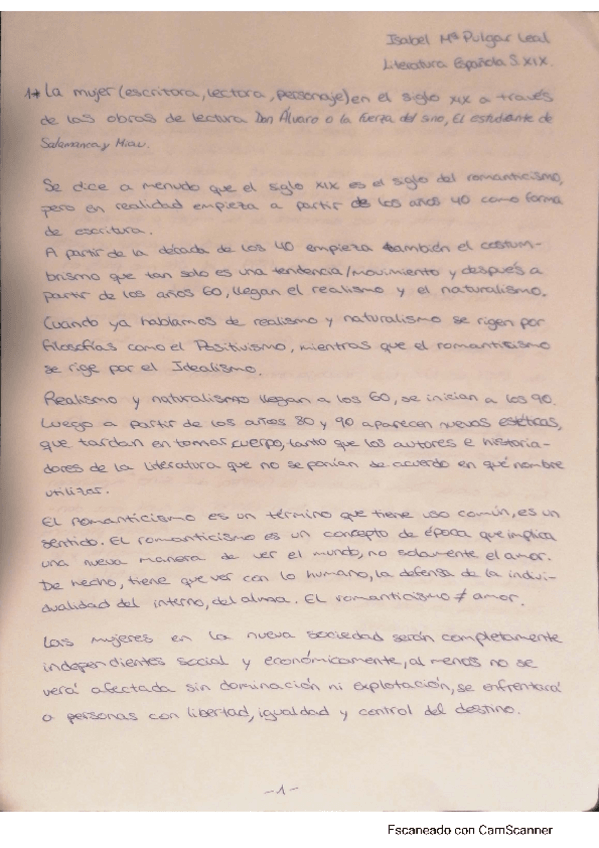 Isabel Mª Pulgar Leal
Literatura Española S.XIX.
1→ La mujer (escritora, lectora, personaje) en el siglo XIX a través
de las obras de lectura Don Álvaro o la fuerza del sino, El estudiante de
Salamanca y Miau.
Se dice a menudo que el siglo XIX es el siglo del romanticismo,
pero en realidad empieza a partir de los años 40 como forma
de escritura.
A partir de la década de los 40 empieza también el costum-
brismo que tan solo es una tendencia/movimiento y después a
partir de los años 60, llegan el realismo y el naturalismo.
Cuando ya hablamos de realismo y naturalismo se rigen por
filosofías como el Positivismo, mientras que el romanticismo
se rige por el Idealismo.
Realismo y naturalismo llegan a los 60, se inician a los 90.
Luego a partir de los años 80 y 90 aparecen nuevas estéticas,
que tardan en tomar cuerpo, tanto que los autores e historia-
dores de la literatura que no se ponían de acuerdo en qué nombre
utilizar.
El romanticismo es un término que tiene uso común, es un
sentido. El romanticismo es un concepto de época que implica
una nueva manera de ver el mundo, no solamente el amor.
De hecho, tiene que ver con lo humano, la defensa de la indivi-
dualidad del interno, del alma. El romanticismo ≠ amor.
Las mujeres en la nueva sociedad serán completamente
independientes social y económicamente, al menos no se
verá afectada sin dominación ni explotación, se enfrentará
a personas con libertad, igualdad y control del destino.
-1-
Escaneado con CamScanner